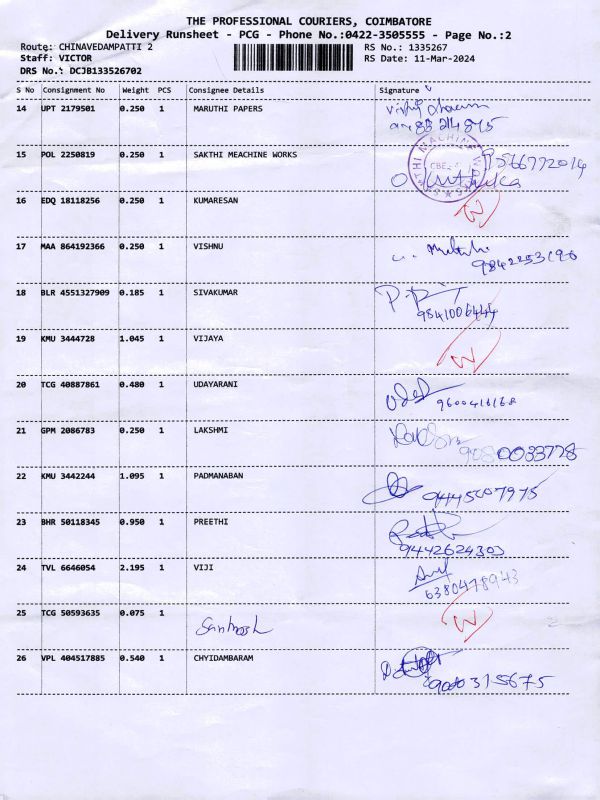 THE PROFESSIONAL COURIERS, COIMBATORE
Delivery Runsheet - PCG - Phone No.:0422-3505555 - Page No.:2
Route: CHINAVEDAMPATTI 2 RS No.: 1335267
Staff: VICTOR RS Date: 11-Mar-2024
DRS No.: DCJB133526702
S No Consignment No Weight PCS Consignee Details Signature
14 UPT 2179501 0.250 1 MARUTHI PAPERS
15 POL 2250819 0.250 1 SAKTHI MEACHINE WORKS
16 EDQ 18118256 0.250 1 KUMARESAN
17 MAA 864192366 0.250 1 VISHNU
9842253196
18 BLR 4551327909 0.185 1 SIVAKUMAR
9841006444
19 KMU 3444728 1.045 1 VIJAYA
20 TCG 40887861 0.480 1 UDAYARANI
9600416168
21 GPM 2086783 0.250 1 LAKSHMI
9080033778
22 KMU 3442244 1.095 1 PADMANABAN
9445007975
23 BHR 50118345 0.950 1 PREETHI
9442624303
24 TVL 6646054 2.195 1 VIJI
6380478943
25 TCG 50593635 0.075 1
Santhosh
26 VPL 404517885 0.540 1 CHYIDAMBARAM